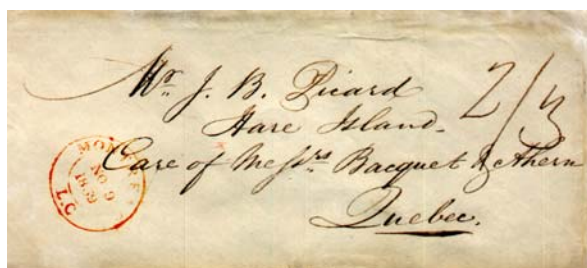 Mr. J. B. Picard
2/3
Hare Island.
Care of Messrs Bacquet & Ahern
Quebec.
MONTREAL
NO 9
L.C